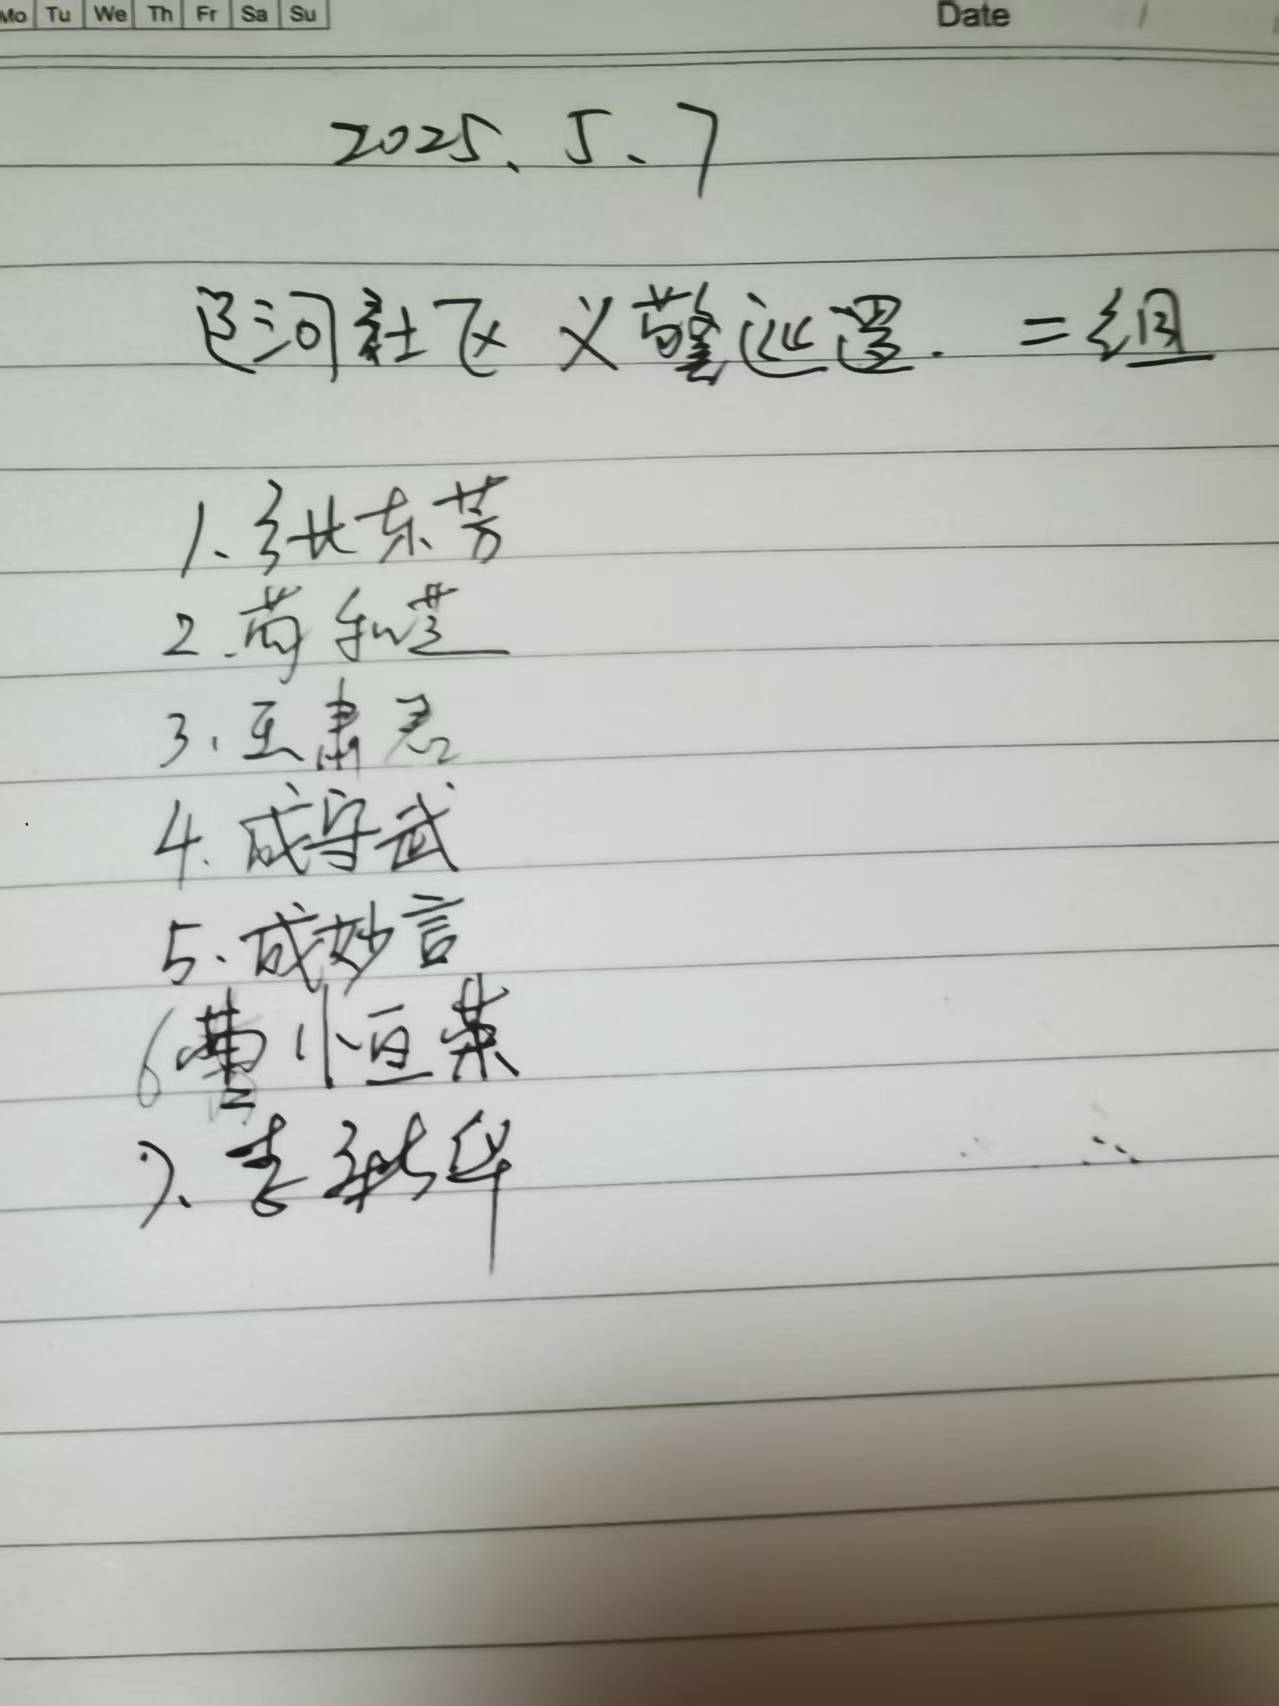 Mo Tu We Th Fr Sa Su Date / /
2025.5.7
河社区义警巡逻.二组
1.东芳
2.苟和芝
3.王肃君
4.成守武
5.成妙言
6曹小恒菜
7.李秋华